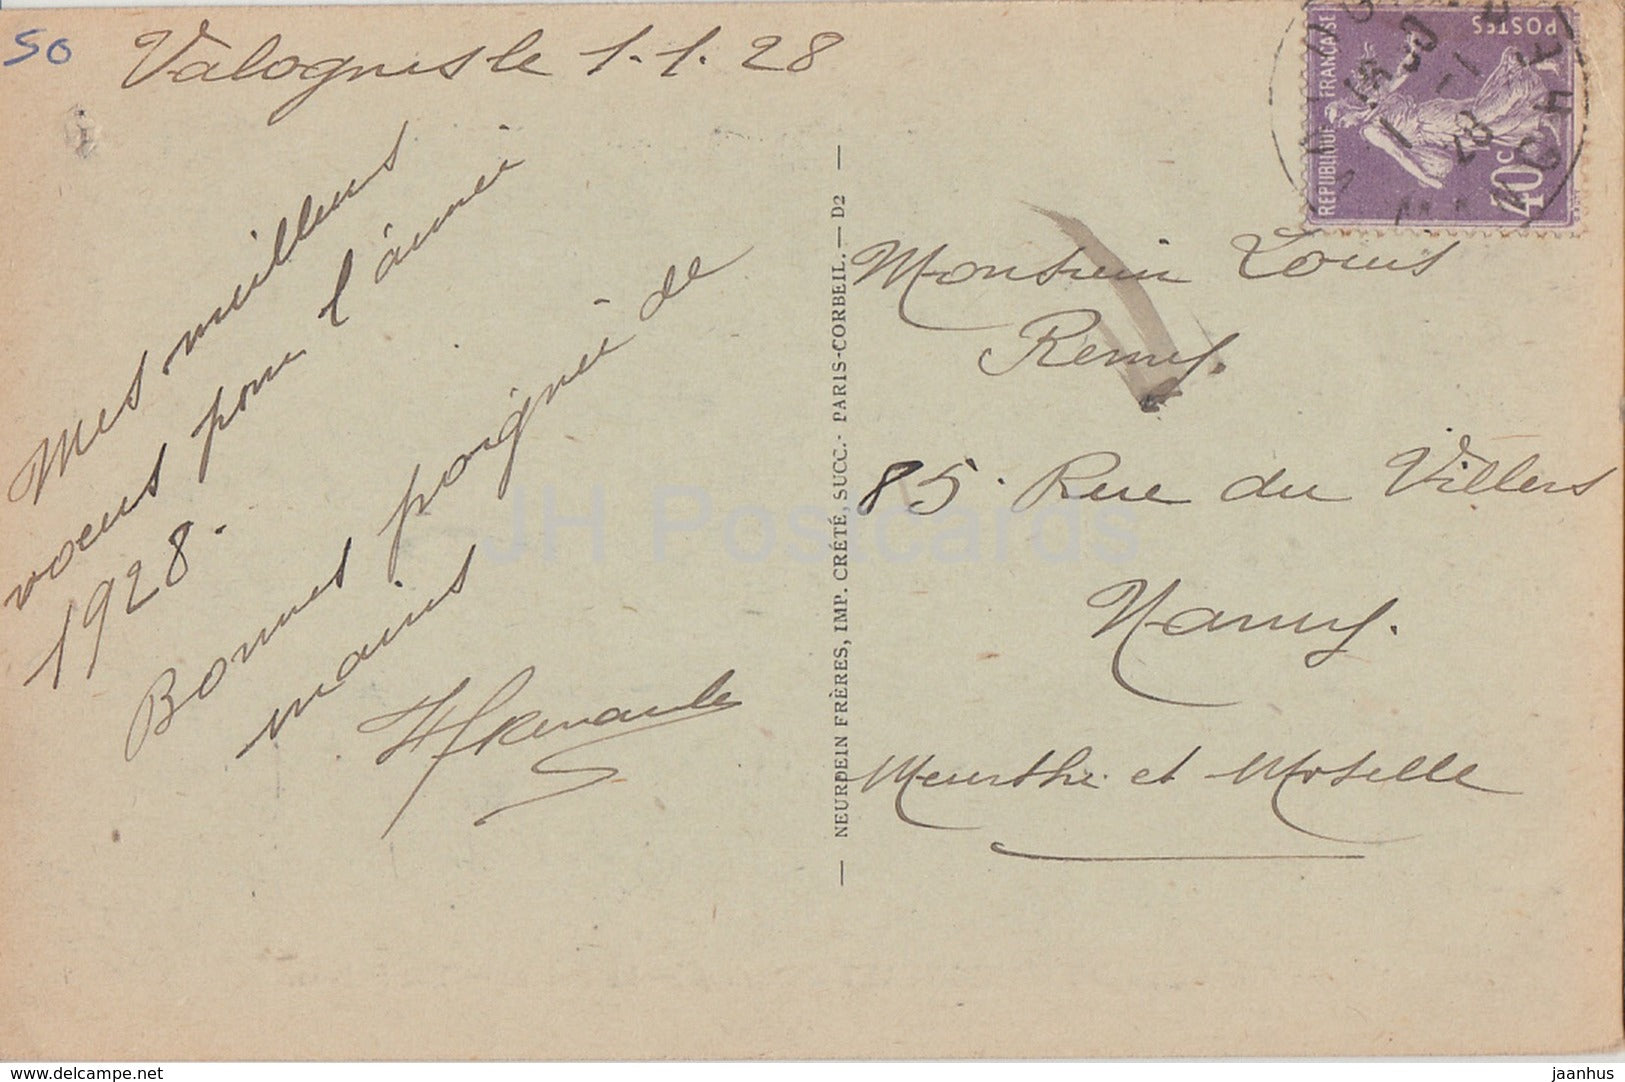 50
Valognes le 1.1.28
Mes meilleurs
vœux pour l'année
1928.
Bonnes poignée de
mains
NEURDEIN FRÈRES, IMP. CRÉTÉ, SUCC.- PARIS-CORBEIL. — D2
POSTES
REPUBLIQUE FRANÇAISE
40c
MANCHE
Monsieur Louis
Remy.
85. Rue du Villers
Nancy.
Meurthe et Moselle
JH Postcards
www.delcampe.net
jaanhus